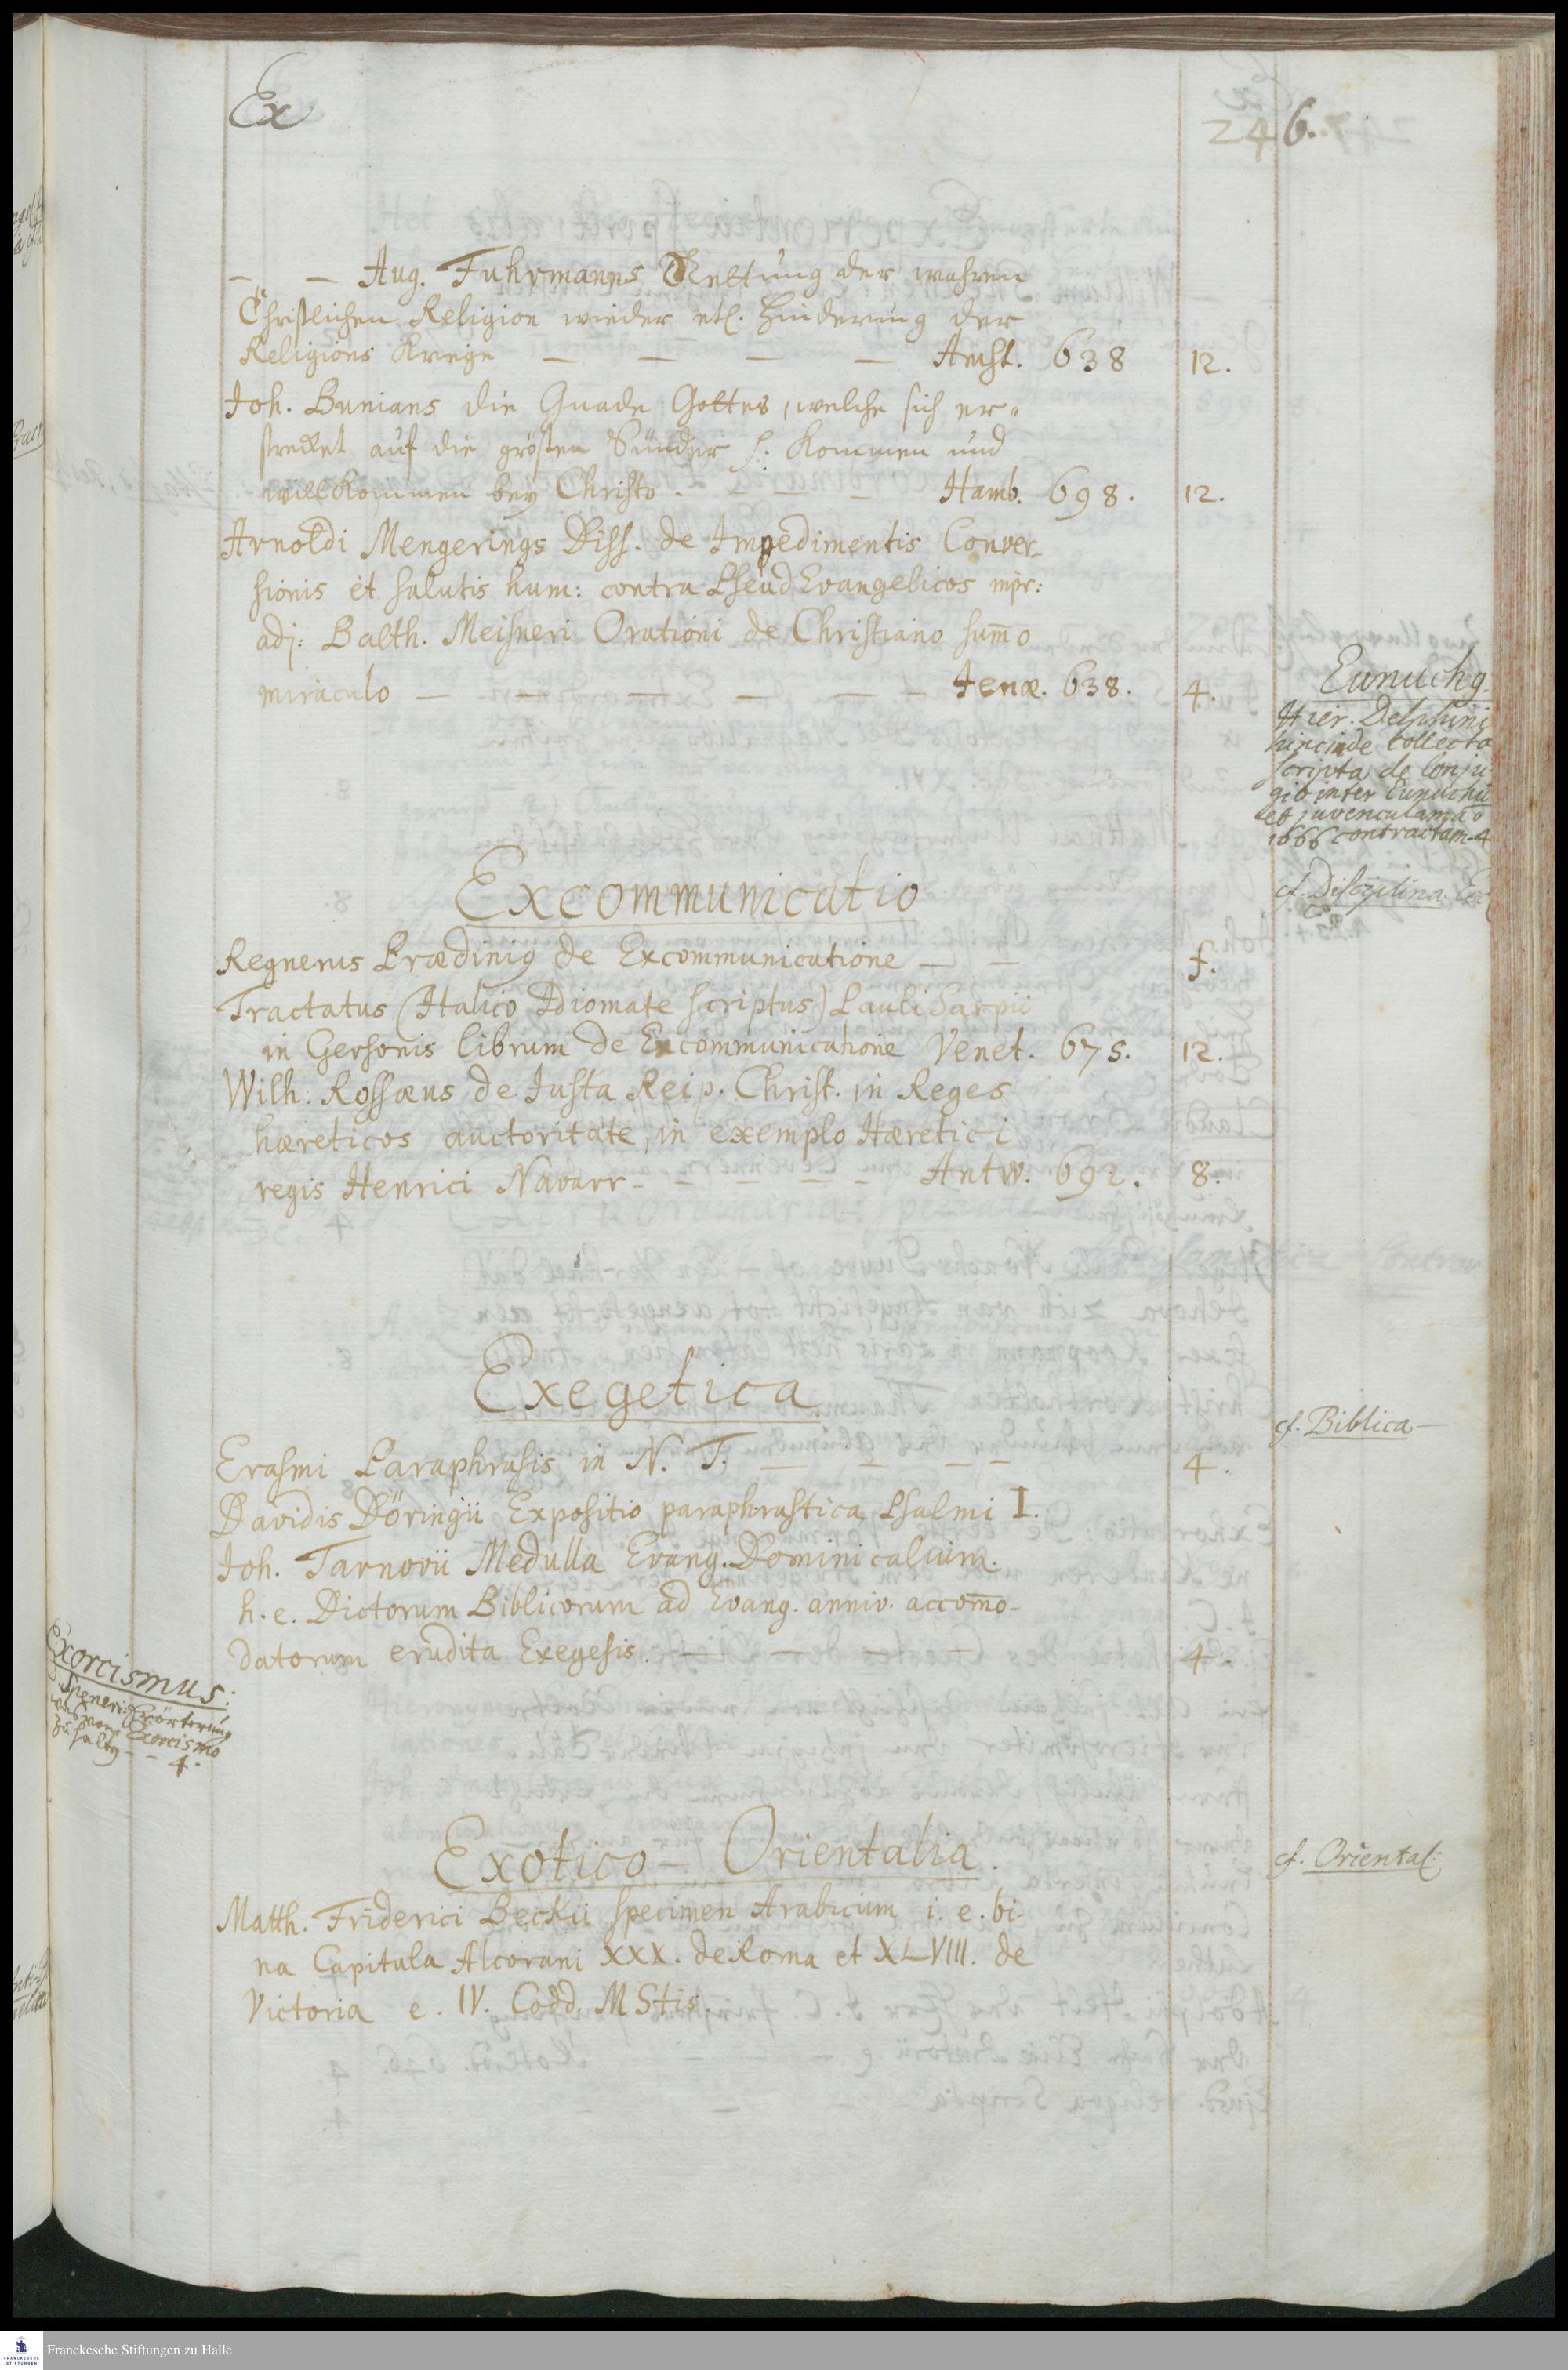 Ex
246.
– – Aug. Fuhrmanns Rettung der wahren
Christlichen Religion wieder etl. Hinderung der
Religions Kriege – – – – Amst. 638 12.
Joh. Bunians die Gnade Gottes, welche sich er-
strecket auf die grösten Sünder s. Kommen und
willkommen bey Christo. – – – Hamb. 698. 12.
Arnoldi Mengerings Diss. de Impedimentis Conver-
sionis et salutis hum: contra PseudEvangelicos
adj: Balth. Meisneri Orationi de Christiano sum̄o
miraculo – – – – – – Jenæ. 638. 4.
Eunuchg.
Hier. Delphini
hincinde collecta
scripta de Conju-
gio inter Eunuchū
et juvenculam aō
1666 contractam. 4
Excommunicatio
cf. Disciplina
Regnerus Prædinig de Excommunicatione – – f.
Tractatus (Italico Idiomate scriptus) Pauli Sarpii
in Gersonis librum de Excommunicatione Venet. 675. 12.
Wilh. Rossæus de Justa Reip. Christ. in Reges
hæreticos auctoritate, in exemplo Hæretici
regis Henrici Navarr – – – – – Antw. 692. 8.
Exegetica
cf. Biblica –
Erasmi Paraphrasis in N. T. – – – – 4.
Davidis Döringii Expositio paraphrastica Psalmi I.
Joh. Tarnovii Medulla Evang. Dominicalium.
h. e. Dictorum Biblicorum ad Evang. anniv. accom̄o-
datorum erudita Exegesis. – – – – 4.
Exorcismus:
Speneri Erörterung
was vom Exorcismo
zu haltg – – 4.
Exotico – Orientalia.
cf. Oriental:
Matth. Friderici Beckii specimen Arabicum i. e. bi-
na Capitula Alcorani XXX. de Roma et XLVIII. de
Victoria e. IV. Codd. MStis.
Franckesche Stiftungen zu Halle